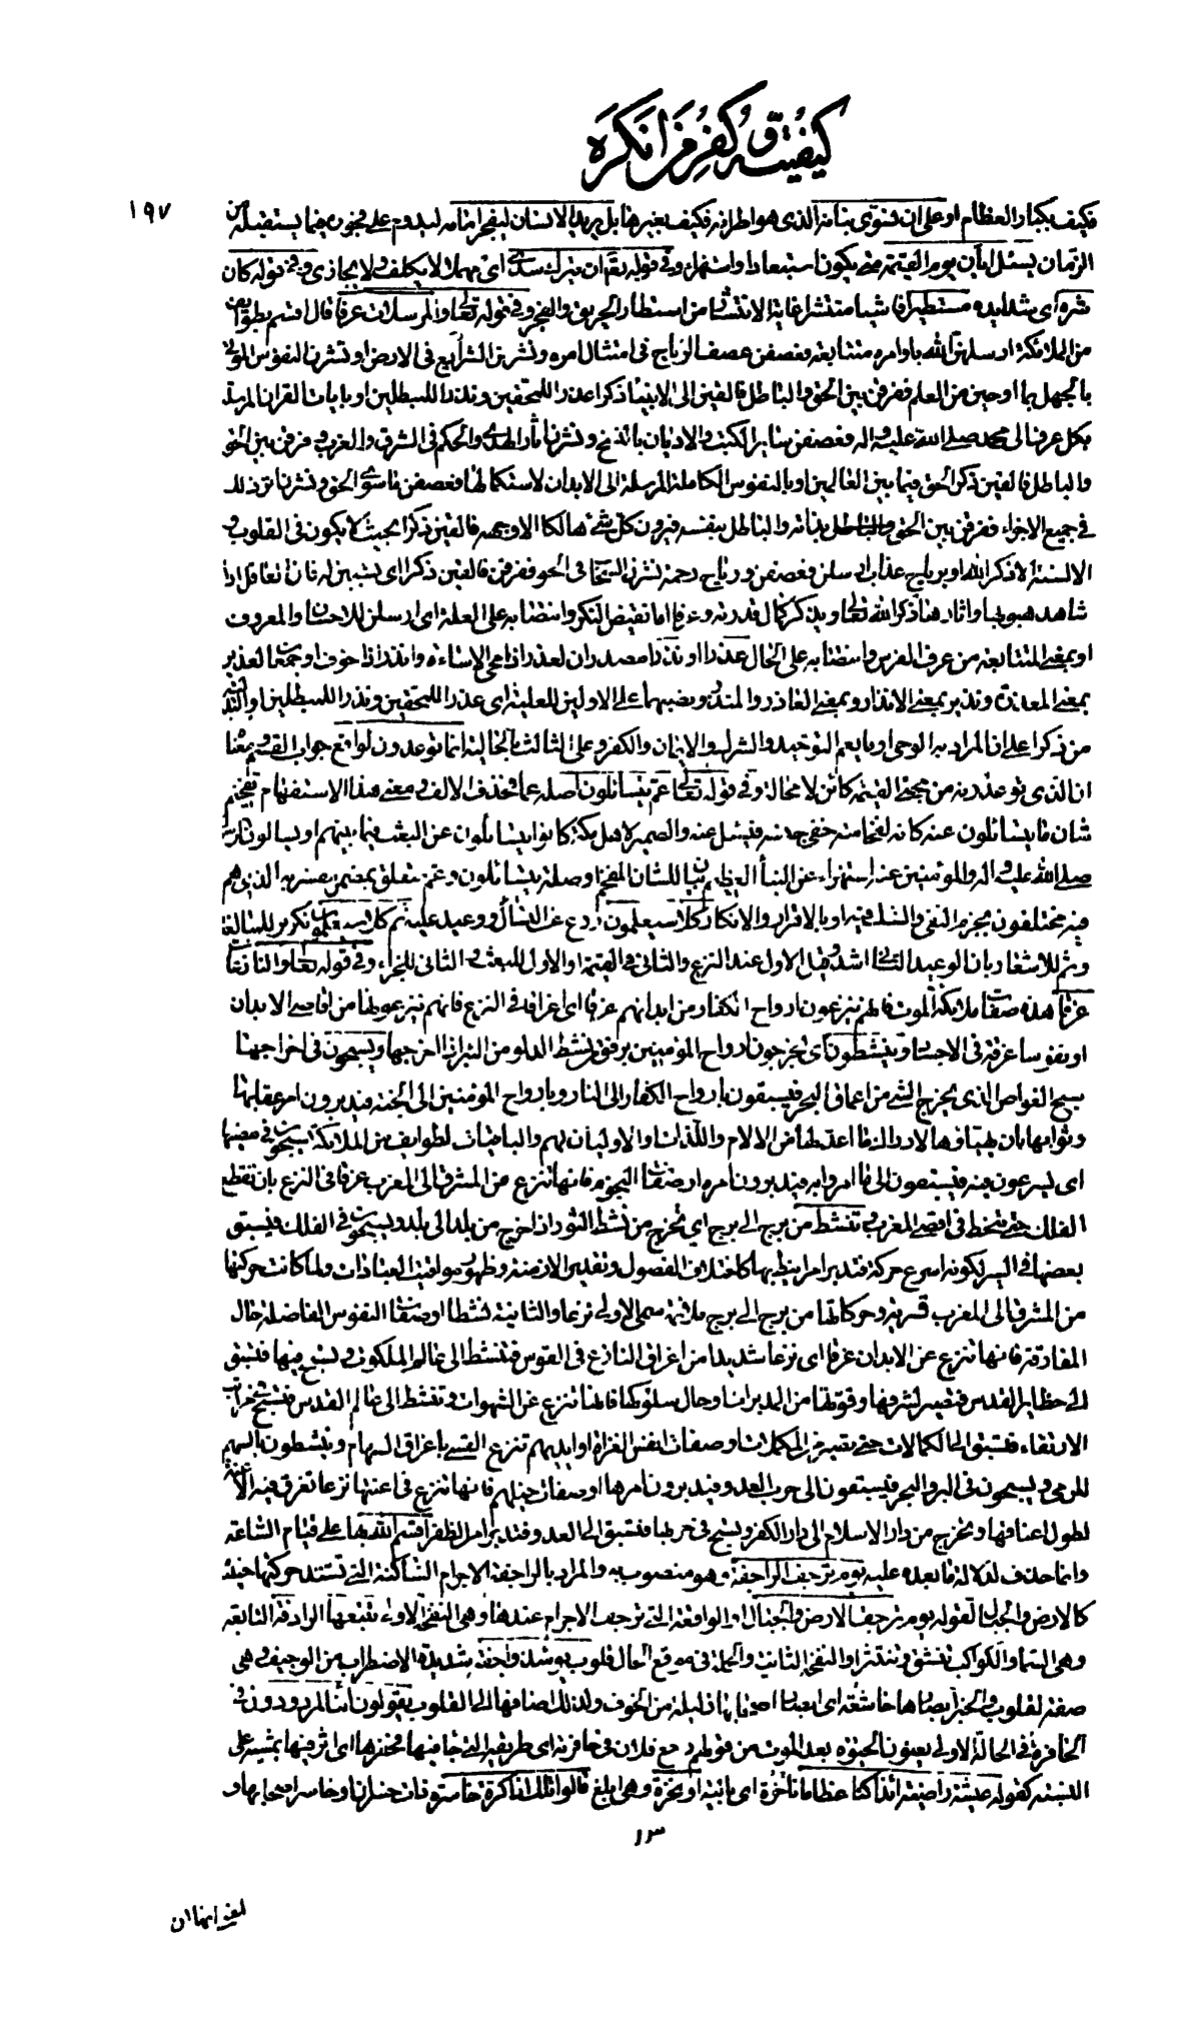 كيفيته وكفر من انكره
١٩٧
فكيف بكبار العظام او على ان نسوى بنانه الذى هو اطرافه فكيف بغيرها بل يريد الانسان ليفجر امامه ليدوم على فجوره فيما يستقبله من
الزمان يسئل ايان يوم القيمة متى يكون استبعادا واستهزاء وفى قوله تعم ان يترك سدى اى مهملا لا يكلف ولا يجازى وفى قوله كان
شره اى شدايده مستطيرا فاشيا منتشرا غاية الانتشار من استطار الحريق والفجر وفى قوله تعالى والمرسلات عرفا قال اقسم بطوايف
من الملائكة ارسلهن الله باوامره متتابعة فعصفن عصف الرياح فى امتثال امره ونشرن الشرايع فى الارض او نشرن النفوس الموتى
بالجهل بما اوحين من العلم ففرقن بين الحق والباطل فالقين الى الانبياء ذكرا عذرا للمحقين ونذرا للمبطلين او بايات القران المرسلة
بكل عرف الى محمد صلى الله عليه واله فعصفن ساير الكتب والاديان بالنسخ ونشرن اثار الهدى والحكم فى الشرق والغرب وفرقن بين الحق
والباطل فالقين ذكر الحق فيما بين العالمين او بالنفوس الكاملة المرسلة الى الابدان لاستكمالها فعصفن ما سوى الحق ونشرن اثر ذلك
فى جميع الاجزاء ففرقن بين الحق بذاته والباطل بنفسه فيرون كل شئ هالكا الا وجهه فالقين ذكرا بحيث لا يكون فى القلوب و
الالسنة الا ذكر الله او برياح عذاب ارسلن فعصفن ورياح رحمة نشرن السحاب فى الجو ففرقن فالقين ذكرا اى تسببن له فان العاقل اذا
شاهد هبوبها واثارها ذكر الله تعالى ويذكر كمال قدرته وعرفا اما نقيض النكر وانتصابه على العلة اى ارسلن للاحسان والمعروف
او بمعنى المتتابعة من عرف الفرس وانتصابه على الحال عذرا او نذرا مصدران لعذر اذا محى الاساءة وانذر اذا خوف او جمعان لعذير
بمعنى المعذرة ونذير بمعنى الانذار او بمعنى العاذر والمنذر ونصبهما على الاولين للعلية اى عذرا للمحقين ونذرا للمبطلين او البدلية
من ذكرا على ان المراد به الوحى او ما يعم التوحيد والشرك والايمان والكفر وعلى الثالث بالحالية انما توعدون لواقع جواب القسم ومعناه
ان الذى توعدونه من مجئ القيمة كائن لا محالة وفى قوله تعالى عم يتسائلون اصله عما فحذف الالف ومعنى هذا الاستفهام تفخيم
شان ما يتسائلون عنه كانه لفخامته خفى جنسه فيسئل عنه والضمير لاهل مكة كانوا يتسائلون عن البعث فيما بينهم او يسالون الرسول
صلى الله عليه واله والمؤمنين عنه استهزاء عن النبأ العظيم بيان للشان المفخم او صلة يتسائلون وعم متعلق بمضمر مفسر به الذى هم
فيه مختلفون بجزم النفى والشك فيه او بالاقرار والانكار كلا سيعلمون ردع عن التسائل ووعيد عليه ثم كلا سيعلمون تكرير للمبالغة
وثم للاشعار بان الوعيد الثانى اشد وقيل الاول عند النزع والثانى فى القيمة او الاول للبعث والثانى للجزاء وفى قوله تعالى والنازعات
غرقا هذه صفات ملائكة الموت فانهم ينزعون ارواح الكفار من ابدانهم غرقا اى اغراقا فى النزع فانهم ينزعونها من اقاصى الابدان
او نفوسا غرقة فى الاجساد وينشطون اى يخرجون ارواح المؤمنين برفق من نشط الدلو من البئر اذا اخرجها ويسبحون فى اخراجها
سبح الغواص الذى يخرج الشئ من اعماق البحر فيسبقون بارواح الكفار الى النار وبارواح المؤمنين الى الجنة فيدبرون امر عقابها
وثوابها بان يهيئوها لادراك ما اعد لها من الالام واللذات او الاوليان لهم والباقيات لطوايف من الملائكة يسبحون فى مضيها
اى يسرعون فيه فيسبقون الى ما امروا به فيدبرون امره او صفات النجوم فانها تنزع من المشرق الى المغرب غرقا فى النزع بان تقطع
الفلك حتى تنحط فى اقصى المغرب وتنشط من برج الى برج اى تخرج من نشط الثور اذا خرج من بلد الى بلد ويسبحون فى الفلك فيسبق
بعضها فى السير لكونه اسرع حركة فتدبر امرا نيط بها كاختلاف الفصول وتقدير الازمنة وظهور مواقيت العبادات ولما كانت حركتها
من المشرق الى المغرب قسرية وحركاتها من برج الى برج ملائمة سمى الاولى نزعا والثانية نشطا او صفات النفوس الفاضلة حال
المفارقة فانها تنزع عن الابدان غرقا اى نزعا شديدا من اغراق النازع فى القوس فتنشط الى عالم الملكوت وتسبح فيها فتسبق
الى حظاير القدس فتصير لشرفها وقوتها من المدبرات او حال سلوكها فانها تنزع عن الشهوات وتنشط الى عالم القدس فتسبح فى مراتب
الارتقاء فتسبق الى الكمالات حتى تصير من المكملات او صفات انفس الغزاة او ايديهم تنزع القسى باغراق السهام وينشطون بالسهم
للرمى ويسبحون فى البر والبحر فيسبقون الى حرب العدو فيدبرون امرها او صفات خيلهم فانها تنزع فى اعنتها نزعا تغرق فيه الاعنة
لطول اعناقها وتخرج من دار الاسلام الى دار الكفر وتسبح فى جريها فتسبق الى العدو فتدبر امر الظفر اقسم الله بها على قيام الساعة
وانما حذف لدلالة ما بعده عليه يوم ترجف الراجفة وهو منصوب به والمراد بالراجفة الاجرام الساكنة التى تشتد حركتها حينئذ
كالارض والجبال لقوله يوم ترجف الارض والجبال او الواقعة التى ترجف الاجرام عندها وهى النفخة الاولى تتبعها الرادفة التابعة
وهى السماء والكواكب تنشق وتنتثر او النفخة الثانية والجملة فى موقع الحال قلوب يومئذ واجفة شديدة الاضطراب من الوجيف وهى
صفة لقلوب والخبر ابصارها خاشعة اى ابصار اصحابها ذليلة من الخوف ولذلك اضافها الى القلوب يقولون ائنا لمردودون فى
الحافرة فى الحالة الاولى يعنون الحيوة بعد الموت من قولهم رجع فلان فى حافرته اى طريقه التى جاء فيها فحفرها اى اثر فيها بمشيه على
النسبة كقوله عيشة راضية ائذا كنا عظاما ناخرة اى بالية او نخرة وهى ابلغ قالوا تلك اذا كرة خاسرة ذات خسران او خاسر اصحابها و
١٣
لغير انها ان